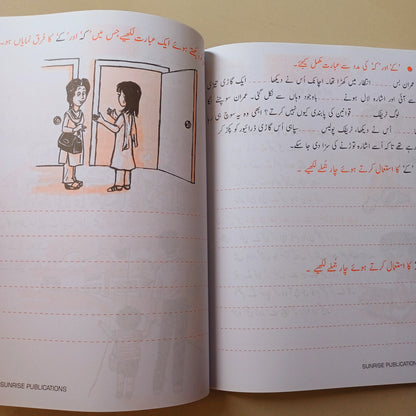 دیکھتے ہوئے ایک عبارت لکھیے جس میں 'کہ' اور 'کے' کا فرق نمایاں ہو۔
SUNRISE PUBLICATIONS
'کے' اور 'کہ' کی مدد سے عبارت مکمل کیجیے۔
عمران بس ..... انتظار میں کھڑا تھا۔ اچانک اُس نے دیکھا ..... ایک گاڑی تیزی
آئی اور اشارہ لال ہونے ..... باوجود وہاں سے نکل گئی۔ عمران سوچنے لگا
..... لوگ ٹریفک ..... قوانین کی پابندی کیوں نہیں کرتے؟ ابھی وہ یہ سوچ ہی رہا
..... اُس نے دیکھا، ٹریفک پولیس ..... سپاہی اُس گاڑی ڈرائیور کو پکڑ کر
رہے تھے تاکہ اُسے اشارہ توڑنے کی سزا دی جا سکے۔
'کے' کا استعمال کرتے ہوئے چار جُملے لکھیے۔
کا استعمال کرتے ہوئے چار جُملے لکھیے۔
SUNRISE PUBLICATIONS